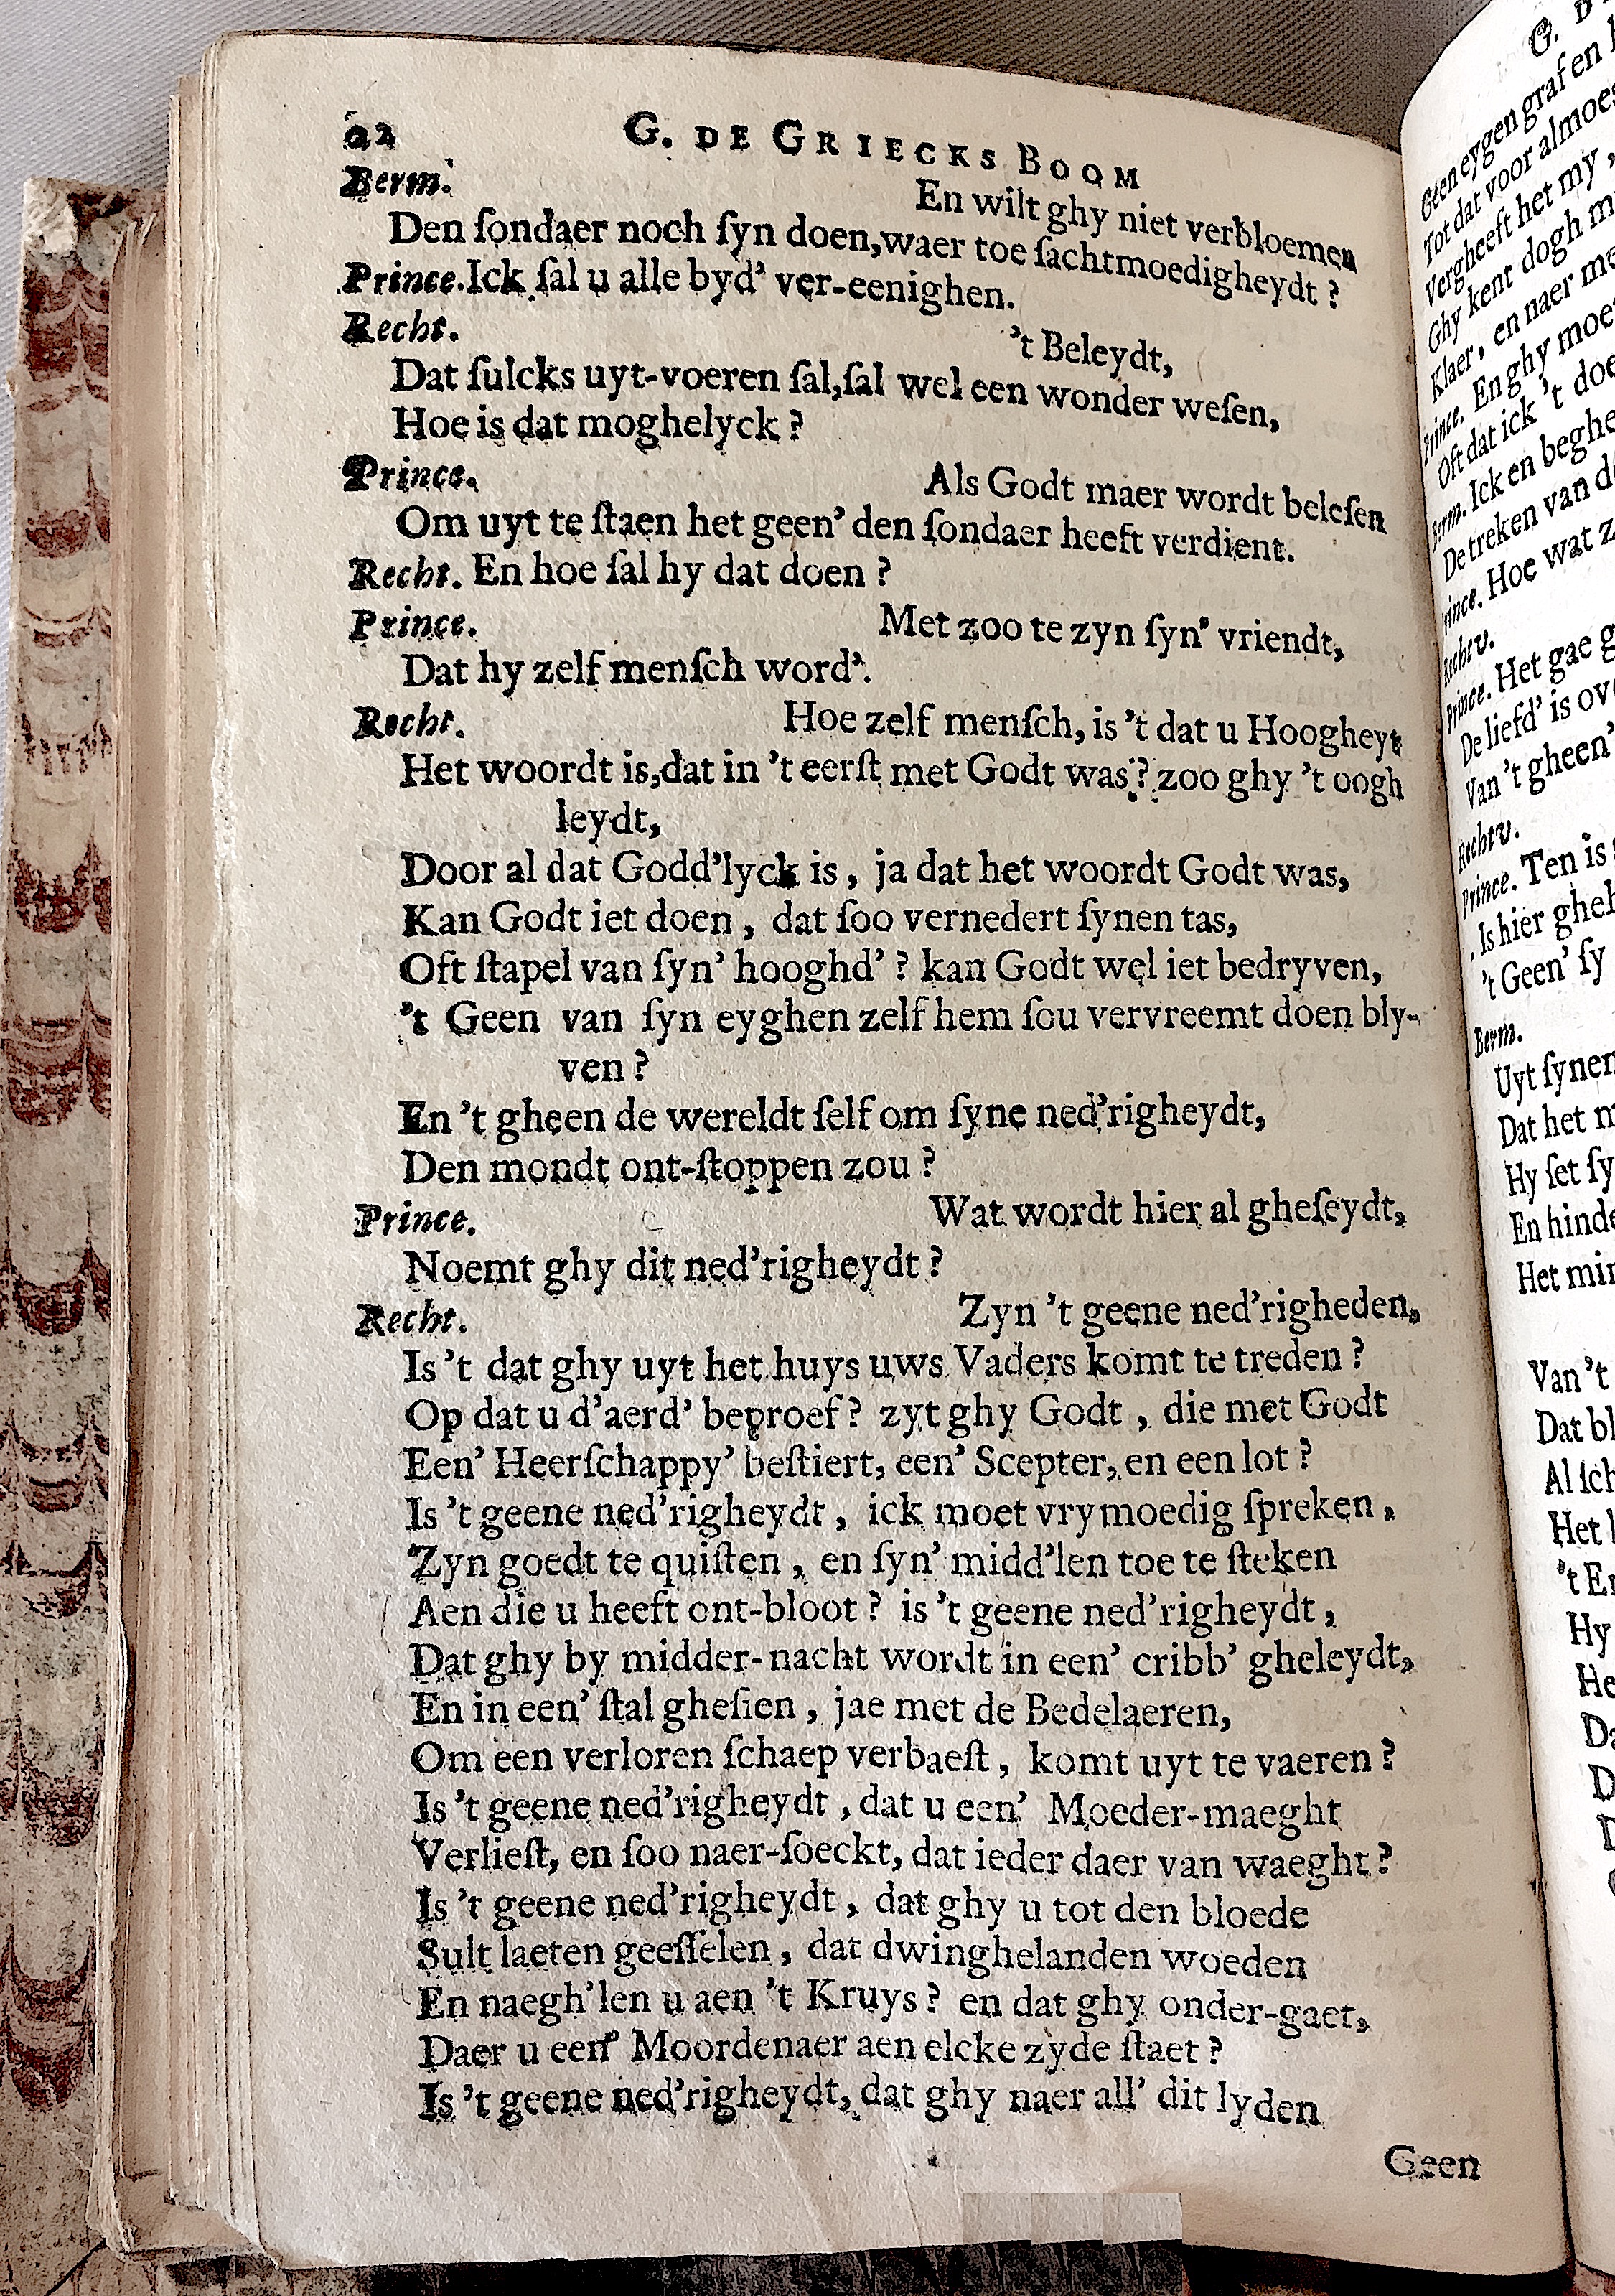 22 G. DE GRIECKS BOOM
Berm. En wilt ghy niet verbloemen
Den ſondaer noch ſyn doen, waer toe ſachtmoedigheydt ?
Prince. Ick ſal u alle byd' ver-eenighen.
Recht. 't Beleydt,
Dat ſulcks uyt-voeren ſal, ſal wel een wonder weſen,
Hoe is dat moghelyck ?
Prince. Als Godt maer wordt beleſen
Om uyt te ſtaen het geen' den ſondaer heeft verdient.
Recht. En hoe ſal hy dat doen ?
Prince. Met zoo te zyn ſyn' vriendt,
Dat hy zelf menſch word'.
Recht. Hoe zelf menſch, is 't dat u Hoogheyt
Het woordt is, dat in 't eerſt met Godt was ? zoo ghy 't oogh
leydt,
Door al dat Godd'lyck is, ja dat het woordt Godt was,
Kan Godt iet doen, dat ſoo vernedert ſynen tas,
Oft ſtapel van ſyn' hooghd' ? kan Godt wel iet bedryven,
't Geen van ſyn eyghen zelf hem ſou vervreemt doen bly-
ven ?
En 't gheen de wereldt ſelf om ſyne ned'righeydt,
Den mondt ont-ſtoppen zou ?
Prince. Wat wordt hier al gheſeydt,
Noemt ghy dit ned'righeydt ?
Recht. Zyn 't geene ned'righeden,
Is 't dat ghy uyt het huys uws Vaders komt te treden ?
Op dat u d'aerd' beproef ? zyt ghy Godt, die met Godt
Een' Heerſchappy' beſtiert, een' Scepter, en een lot ?
Is 't geene ned'righeydt, ick moet vrymoedig ſpreken,
Zyn goedt te quiſten, en ſyn' midd'len toe te ſteken
Aen die u heeft ont-bloot ? is 't geene ned'righeydt,
Dat ghy by midder-nacht wordt in een' cribb' gheleydt,
En in een' ſtal gheſien, jae met de Bedelaeren,
Om een verloren ſchaep verbaeſt, komt uyt te vaeren ?
Is 't geene ned'righeydt, dat u een' Moeder-maeght
Verlieſt, en ſoo naer-ſoeckt, dat ieder daer van waeght ?
Is 't geene ned'righeydt, dat ghy u tot den bloede
Sult laeten geeſſelen, dat dwinghelanden woeden
En naegh'len u aen 't Kruys ? en dat ghy onder-gaet,
Daer u een' Moordenaer aen elcke zyde ſtaet ?
Is 't geene ned'righeydt, dat ghy naer all' dit lyden
Geen
G.
Geen eygen graf en
Tot dat voor almoes
Vergheeft het my,
Ghy kent dogh m
Klaer, en naer me
Prince. En ghy moe
Oft dat ick 't doe
Berm. Ick en beghe
De treken van d
Prince. Hoe wat z
Rechtv.
Prince. Het gae g
De liefd' is ov
Van 't gheen'
Rechtv.
Prince. Ten is
Is hier gheh
't Geen' ſy
Berm.
Uyt ſynen
Dat het m
Hy ſet ſy
En hinde
Het min
Van 't
Dat bl
Al ſch
Het
't En
Hy
He
Da
D
D